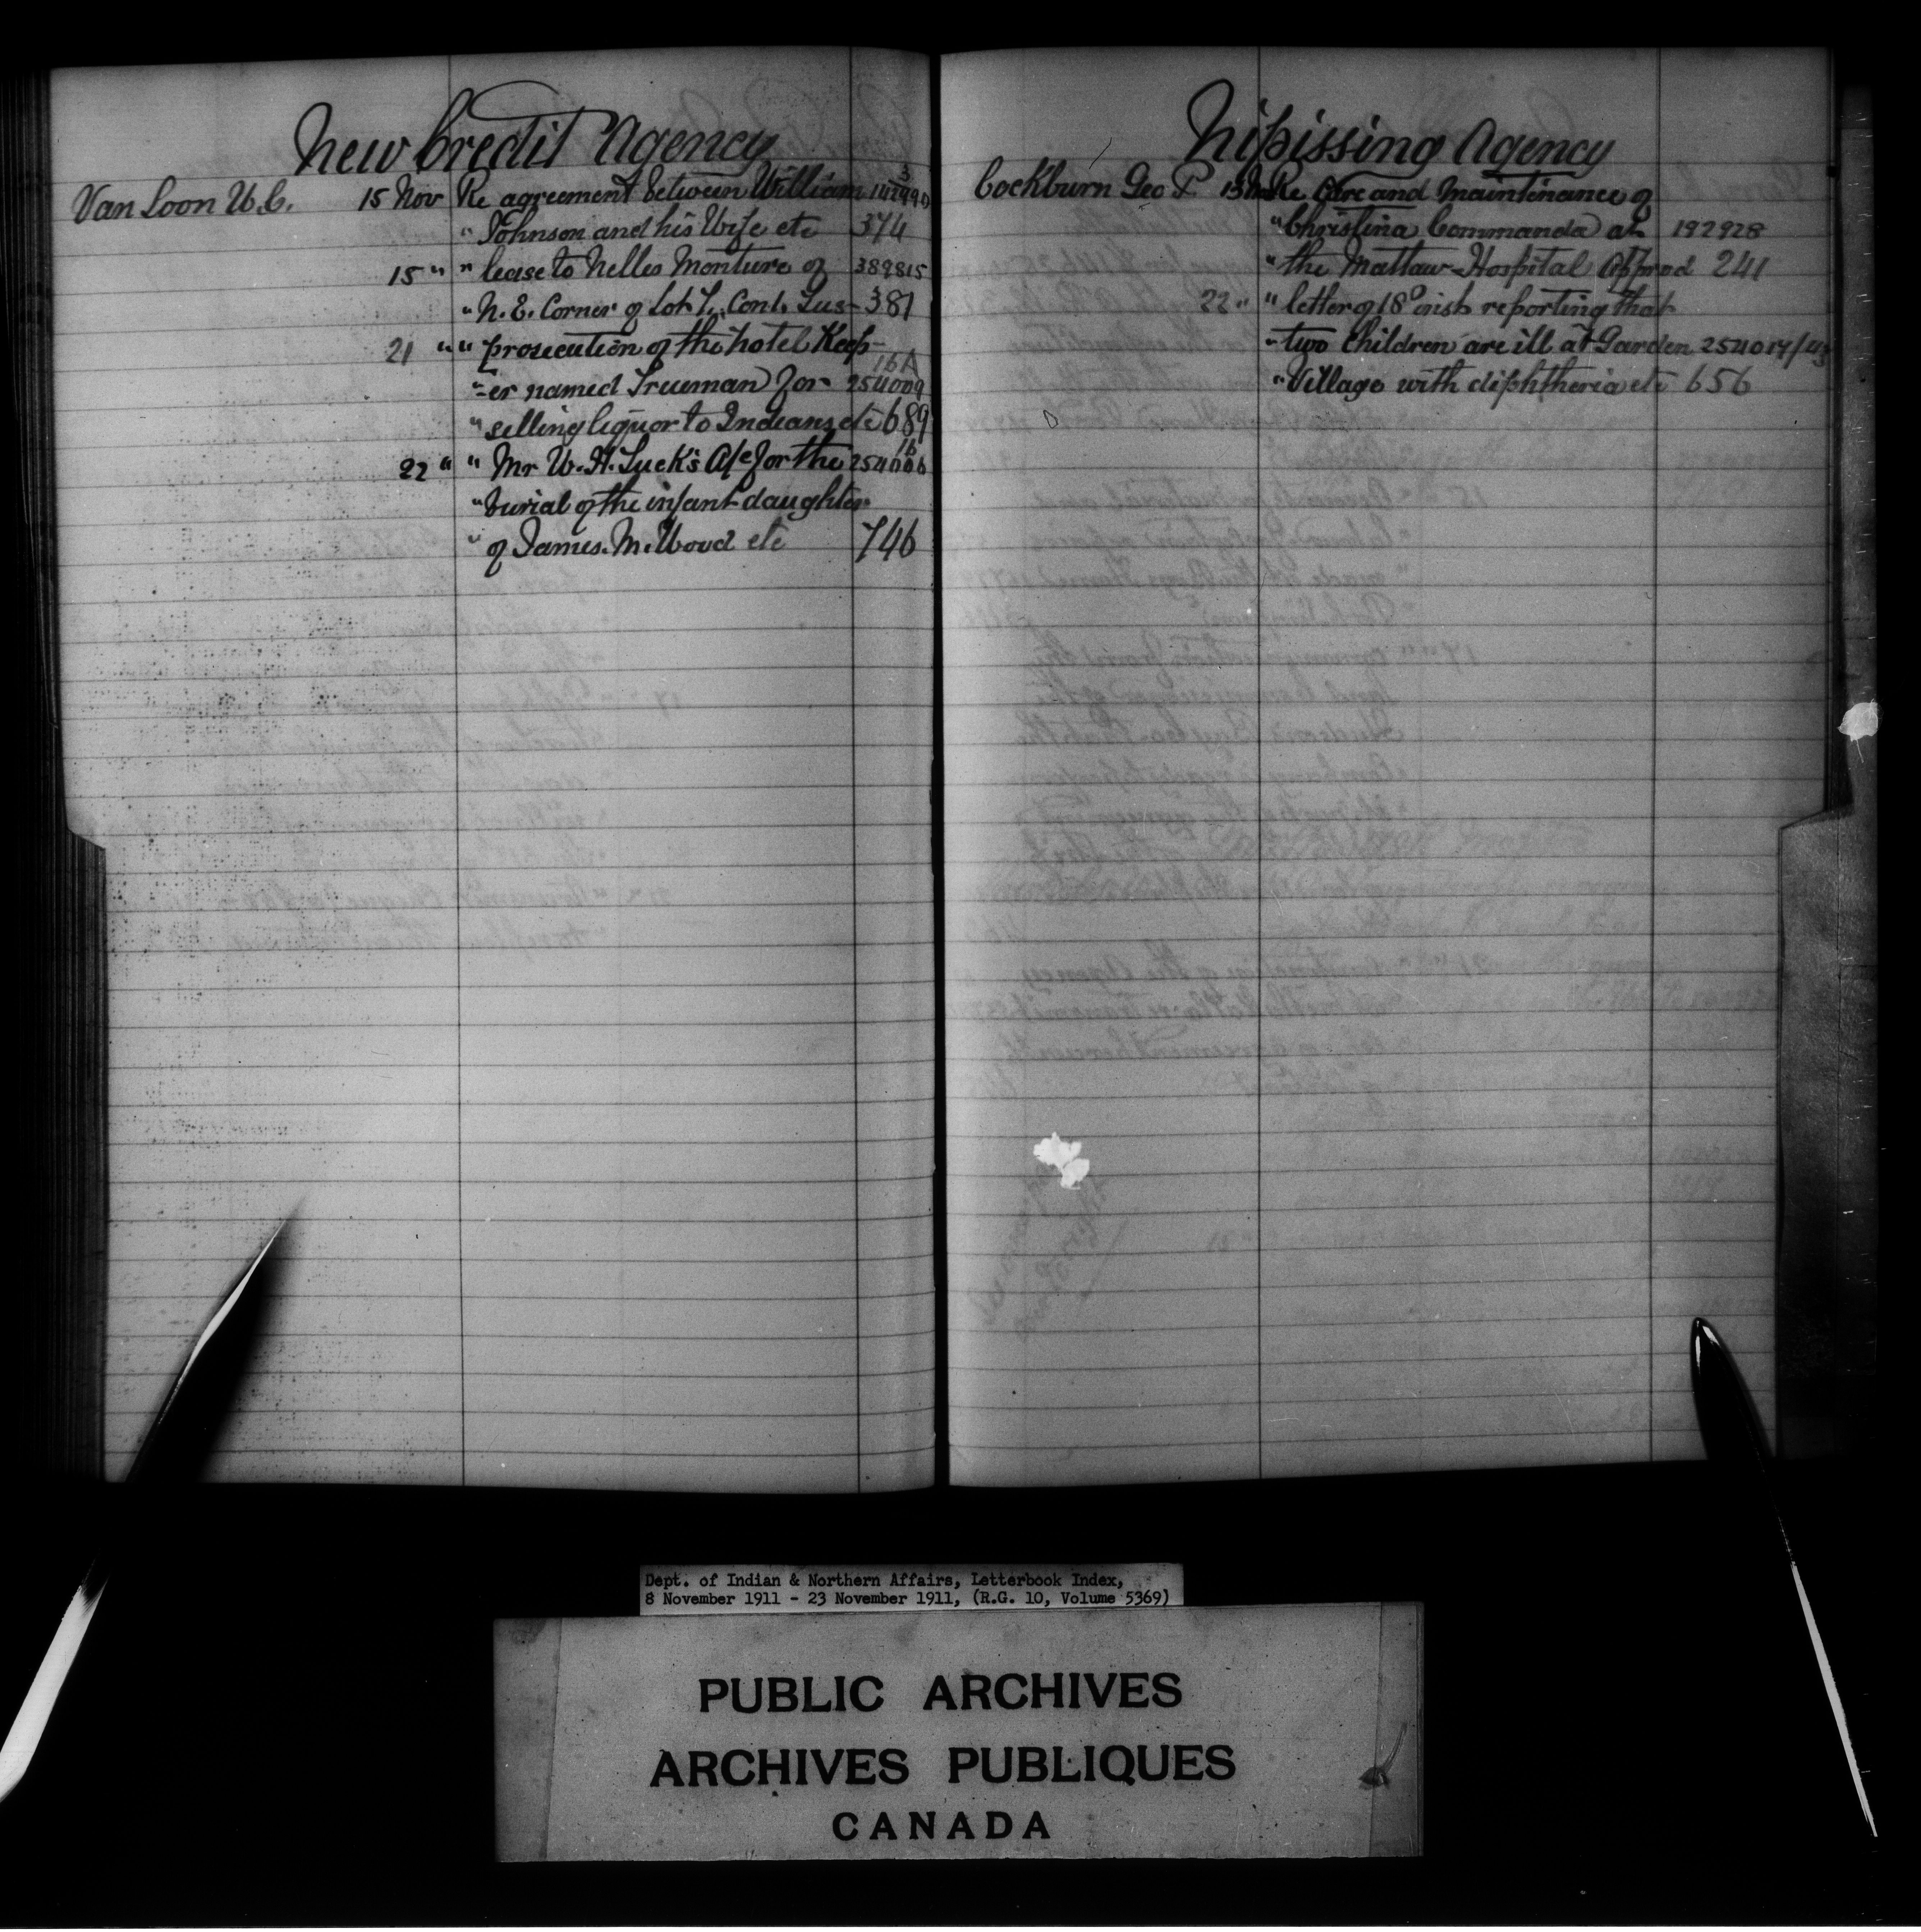 New Credit Agency
Van Loon W.C. 15 Nov Re agreement between William
" Johnson and his Wife etc 374
15 " " lease to Nelles Monture of 389815
" N.E. Corner of Lot 7, Con 1, Tus- 381
21 " " prosecution of the hotel Keep-
"-er named Trueman for 254009 16A
" selling liquor to Indians etc 689
22 " " Mr W. H. Luck's A/c for the 254006 16
" burial of the infant daughter
" of James. M. Wood etc 746
Nipissing Agency
Cockburn Geo P 15 Re Care and Maintenance of
" Christina Commanda at 192928
" the Mattaw-Hospital Approd 241
22 " " letter of 18th inst reporting that
" two Children are ill at Garden 254017/43
" Village with diphtheria etc 656
Dept. of Indian & Northern Affairs, Letterbook Index,
8 November 1911 - 23 November 1911, (R.G. 10, Volume 5369)
PUBLIC ARCHIVES
ARCHIVES PUBLIQUES
CANADA